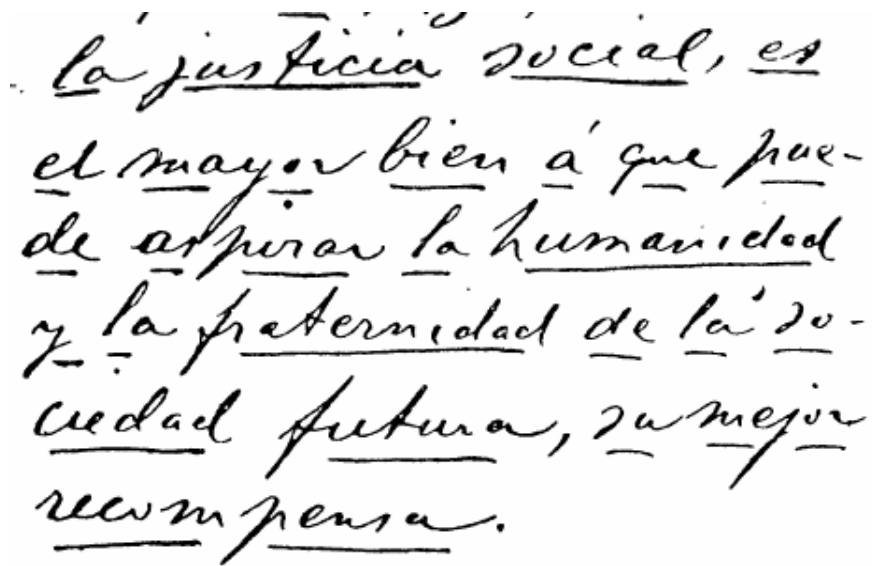 la justicia social, es
el mayor bien á que pue-
de aspirar la humanidad
y la fraternidad de la so-
ciedad futura, su mejor
recompensa.